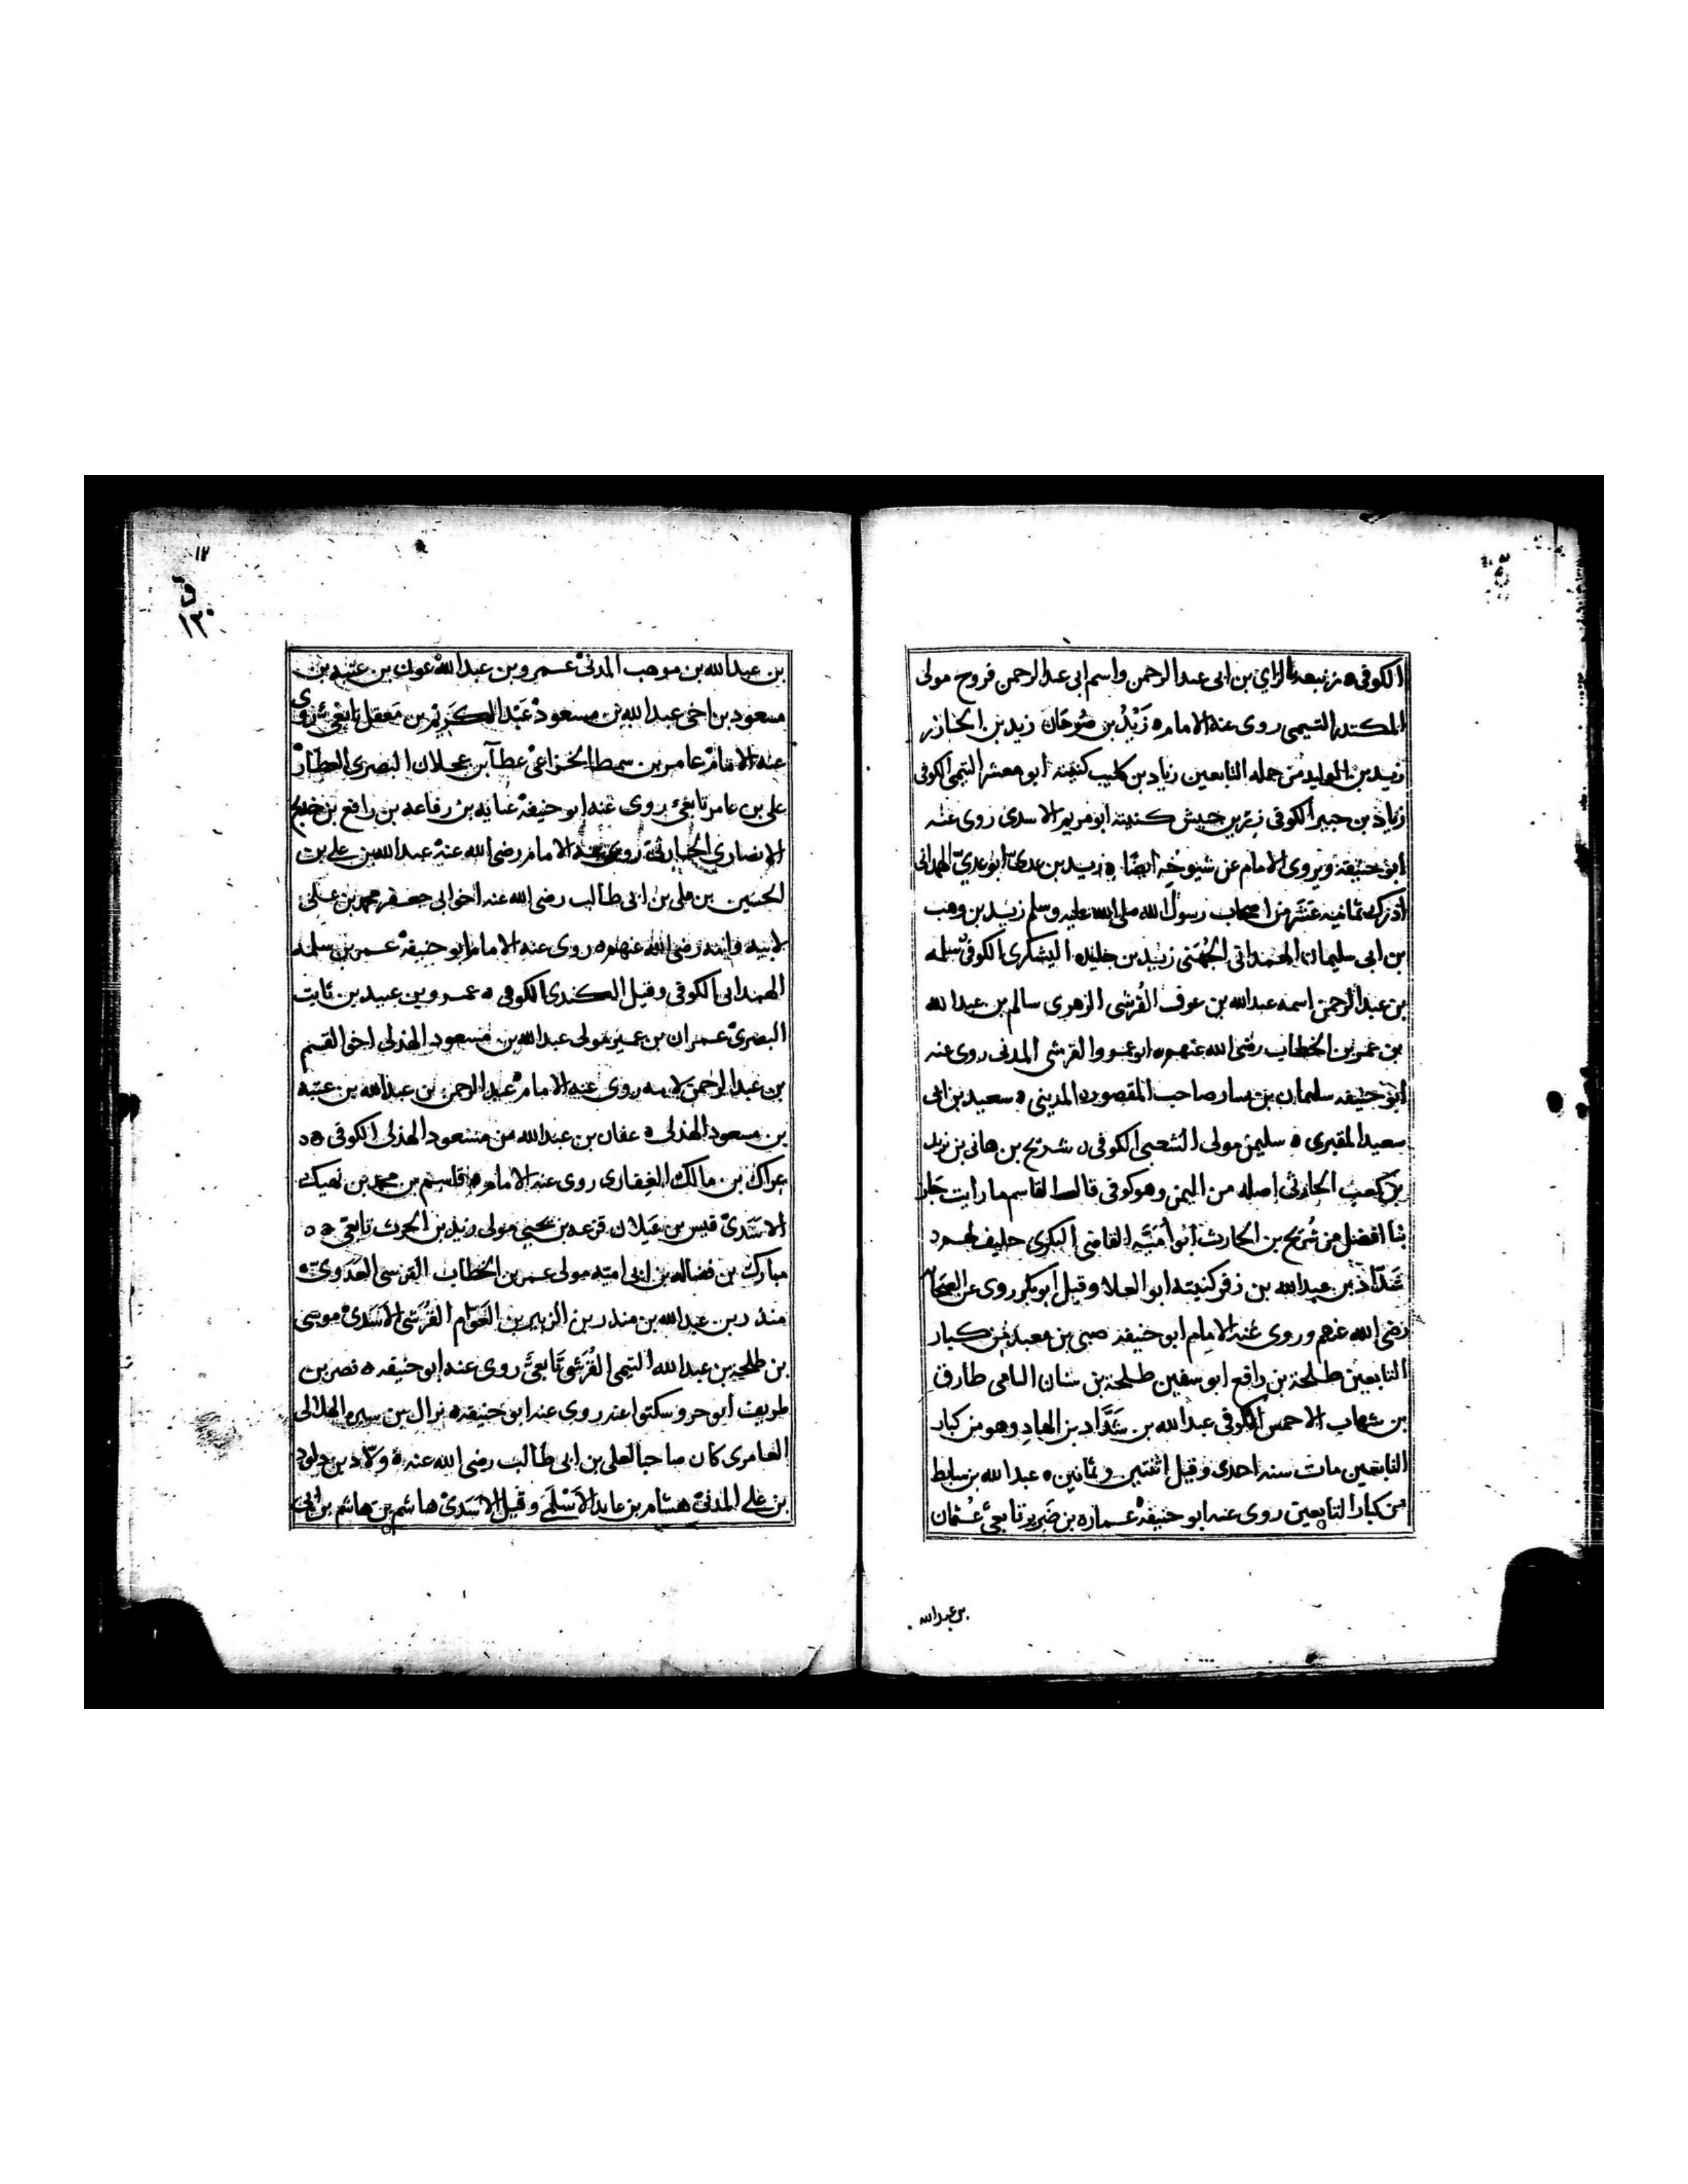 الكوفى ه ربيعة الراي بن ابى عبد الرحمن واسم ابى عبد الرحمن فروح مولى
المنكدر التيمى روى عنه الامام ه زَيْدُ بن صُوحَان زيد بن
زيد بن الوليد من جمله التابعين زياد بن كليب كنيته ابو معشر التيمى الكوفى
زياد بن جبير الكوفى زر بن حبيش كنيته ابو مريم الاسدى روى عنه
ابو حنيفة ويروى الامام عن شيوخه ايضًا ه زيد بن عدى ابو عدي الهمدانى
ادرك ثمانيه عشر من اصحاب رسول الله صلى الله عليه وسلم زيد بن وهب
بن ابى سليمان الهمدانى الجُهَنى زيد بن خليده اليشكرى الكوفى سلمه
بن عبد الرحمن اسمه عبدالله بن عوف القُرشى الزهرى سالم بن عبد الله
بن عمر بن الخطاب رضى الله عنهم ه ابو عمرو القرشى المدنى روى عنه
ابو حنيفه سليمان بن يسار صاحب المقصوره المدينى ه سعيد بن ابى
سعيد المقبرى ه سليمن مولى الشعبى الكوفى ه شريح بن هانى بن يزيد
بن كعب الحارثى اصله من اليمن وهو كوفى قال القاسم ما رايت
افضل من شُريح بن الحارث ابو أُمَيَّه القاضى حليف لهم ه
شَدَّاد بن عبد الله بن زفر كنيته ابو العلا وقيل ابو بكر روى عن الصحابه
رضى الله عنهم وروى عنه الامام ابو حنيفه صبى بن معبد من كبار
التابعين طلحة بن رافع ابو سفين طلحة بن سنان اليامى طارق
بن شهاب الاحمس الكوفى عبد الله بن شَدَّاد بن الهادِ وهو من كبار
التابعين مات سنه احدى وقيل اثنتين وثمانين ه عبد الله بن سابط
من كبار التابعين روى عنه ابو حنيفهْ عماره بن ضرير تابعى عُثمان
بن عبد الله
١٢
١٣٠
بن عبد الله بن موهب المدنىْ عمرو بن عبد الله عون بن عتبه بن
مسعود بن اخى عبد الله بن مسعودْ عَبْد الكَرِيْم بن مَعقل تابعى روى
عنه الامامْ عامر بن سمط الخزاعىْ عطآ بن عجلان البصرى العطارْ
على بن عامر تابعى روى عنه ابو حنيفهْ عبايه بن رفاعه بن رافع بن خديج
الانصارى روى عنه الامام رضى الله عنهْ عبد الله بن على بن
الحسين بن على بن ابى طالب رضى الله عنه اخو ابى جعفر محمد بن على
لابيه وامه رضى الله عنهم ه روى عنه الامام ابو حنيفهْ عمر بن سلمه
الهمدانى الكوفى وقيل الكندى الكوفى ه عمرو بن عبيد بن ثابت
البصرىْ عمران بن عمير مولى عبد الله بن مسعود الهذلى اخو القسم
بن عبد الرحمن لامه روى عنه الامامْ عبد الرحمن بن عبد الله بن عتبه
بن مسعود الهذلى ه عفان بن عبد الله من مسعود الهذلى الكوفى ه ه
عراك بن مالك الغِفارى روى عنه الامام ه قاسم بن محمد بن نهيك
الاسَدىْ قيس بن عَيلان قزعه بن يحيى مولى زيد بن الحرث تابعى ه ه
مبارك بن فضاله بن ابى اميّه مولى عمر بن الخطاب القرسى العَدَوىّ ه
منذر بن عبد الله بن منذر بن الزبير بن العَوَّام القُرَشى الاسَدىْ موسى
بن طلحة بن عبد الله التيمى القُرَشى تَابعىَّ روى عنه ابو حنيفه ه نصر بن
طريف ابو جزو سكتوا عنه روى عنه ابو حنيفه ه نزال بن سبره الهلالى
العامرى كان صاحبا لعلى بن ابى طالب رضى الله عنه ه ولّاد بن داود
بن على المدنىْ هشام بن عايد الاسْلَمى وقيل الاسَدىْ هاشم بن هاشم بن ابى